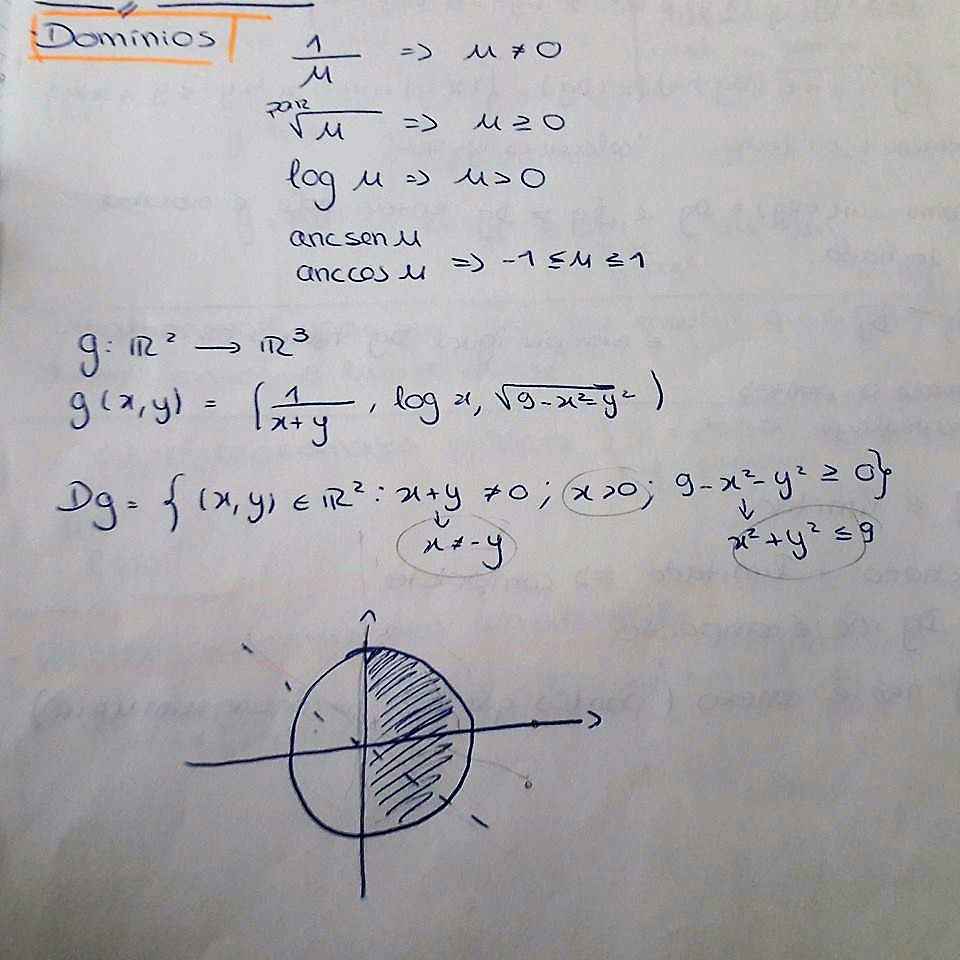 Domínios
1/μ => μ ≠ 0
par√μ => μ ≥ 0
log μ => μ > 0
arcsen μ
arccos μ => -1 ≤ μ ≤ 1
g: ℝ² → ℝ³
g(x,y) = (1/(x+y), log x, √(9-x²-y²))
Dg = {(x,y) ∈ ℝ²: x+y ≠ 0; x>0; 9-x²-y² ≥ 0}
↓ ↓
x ≠ -y x²+y² ≤ 9